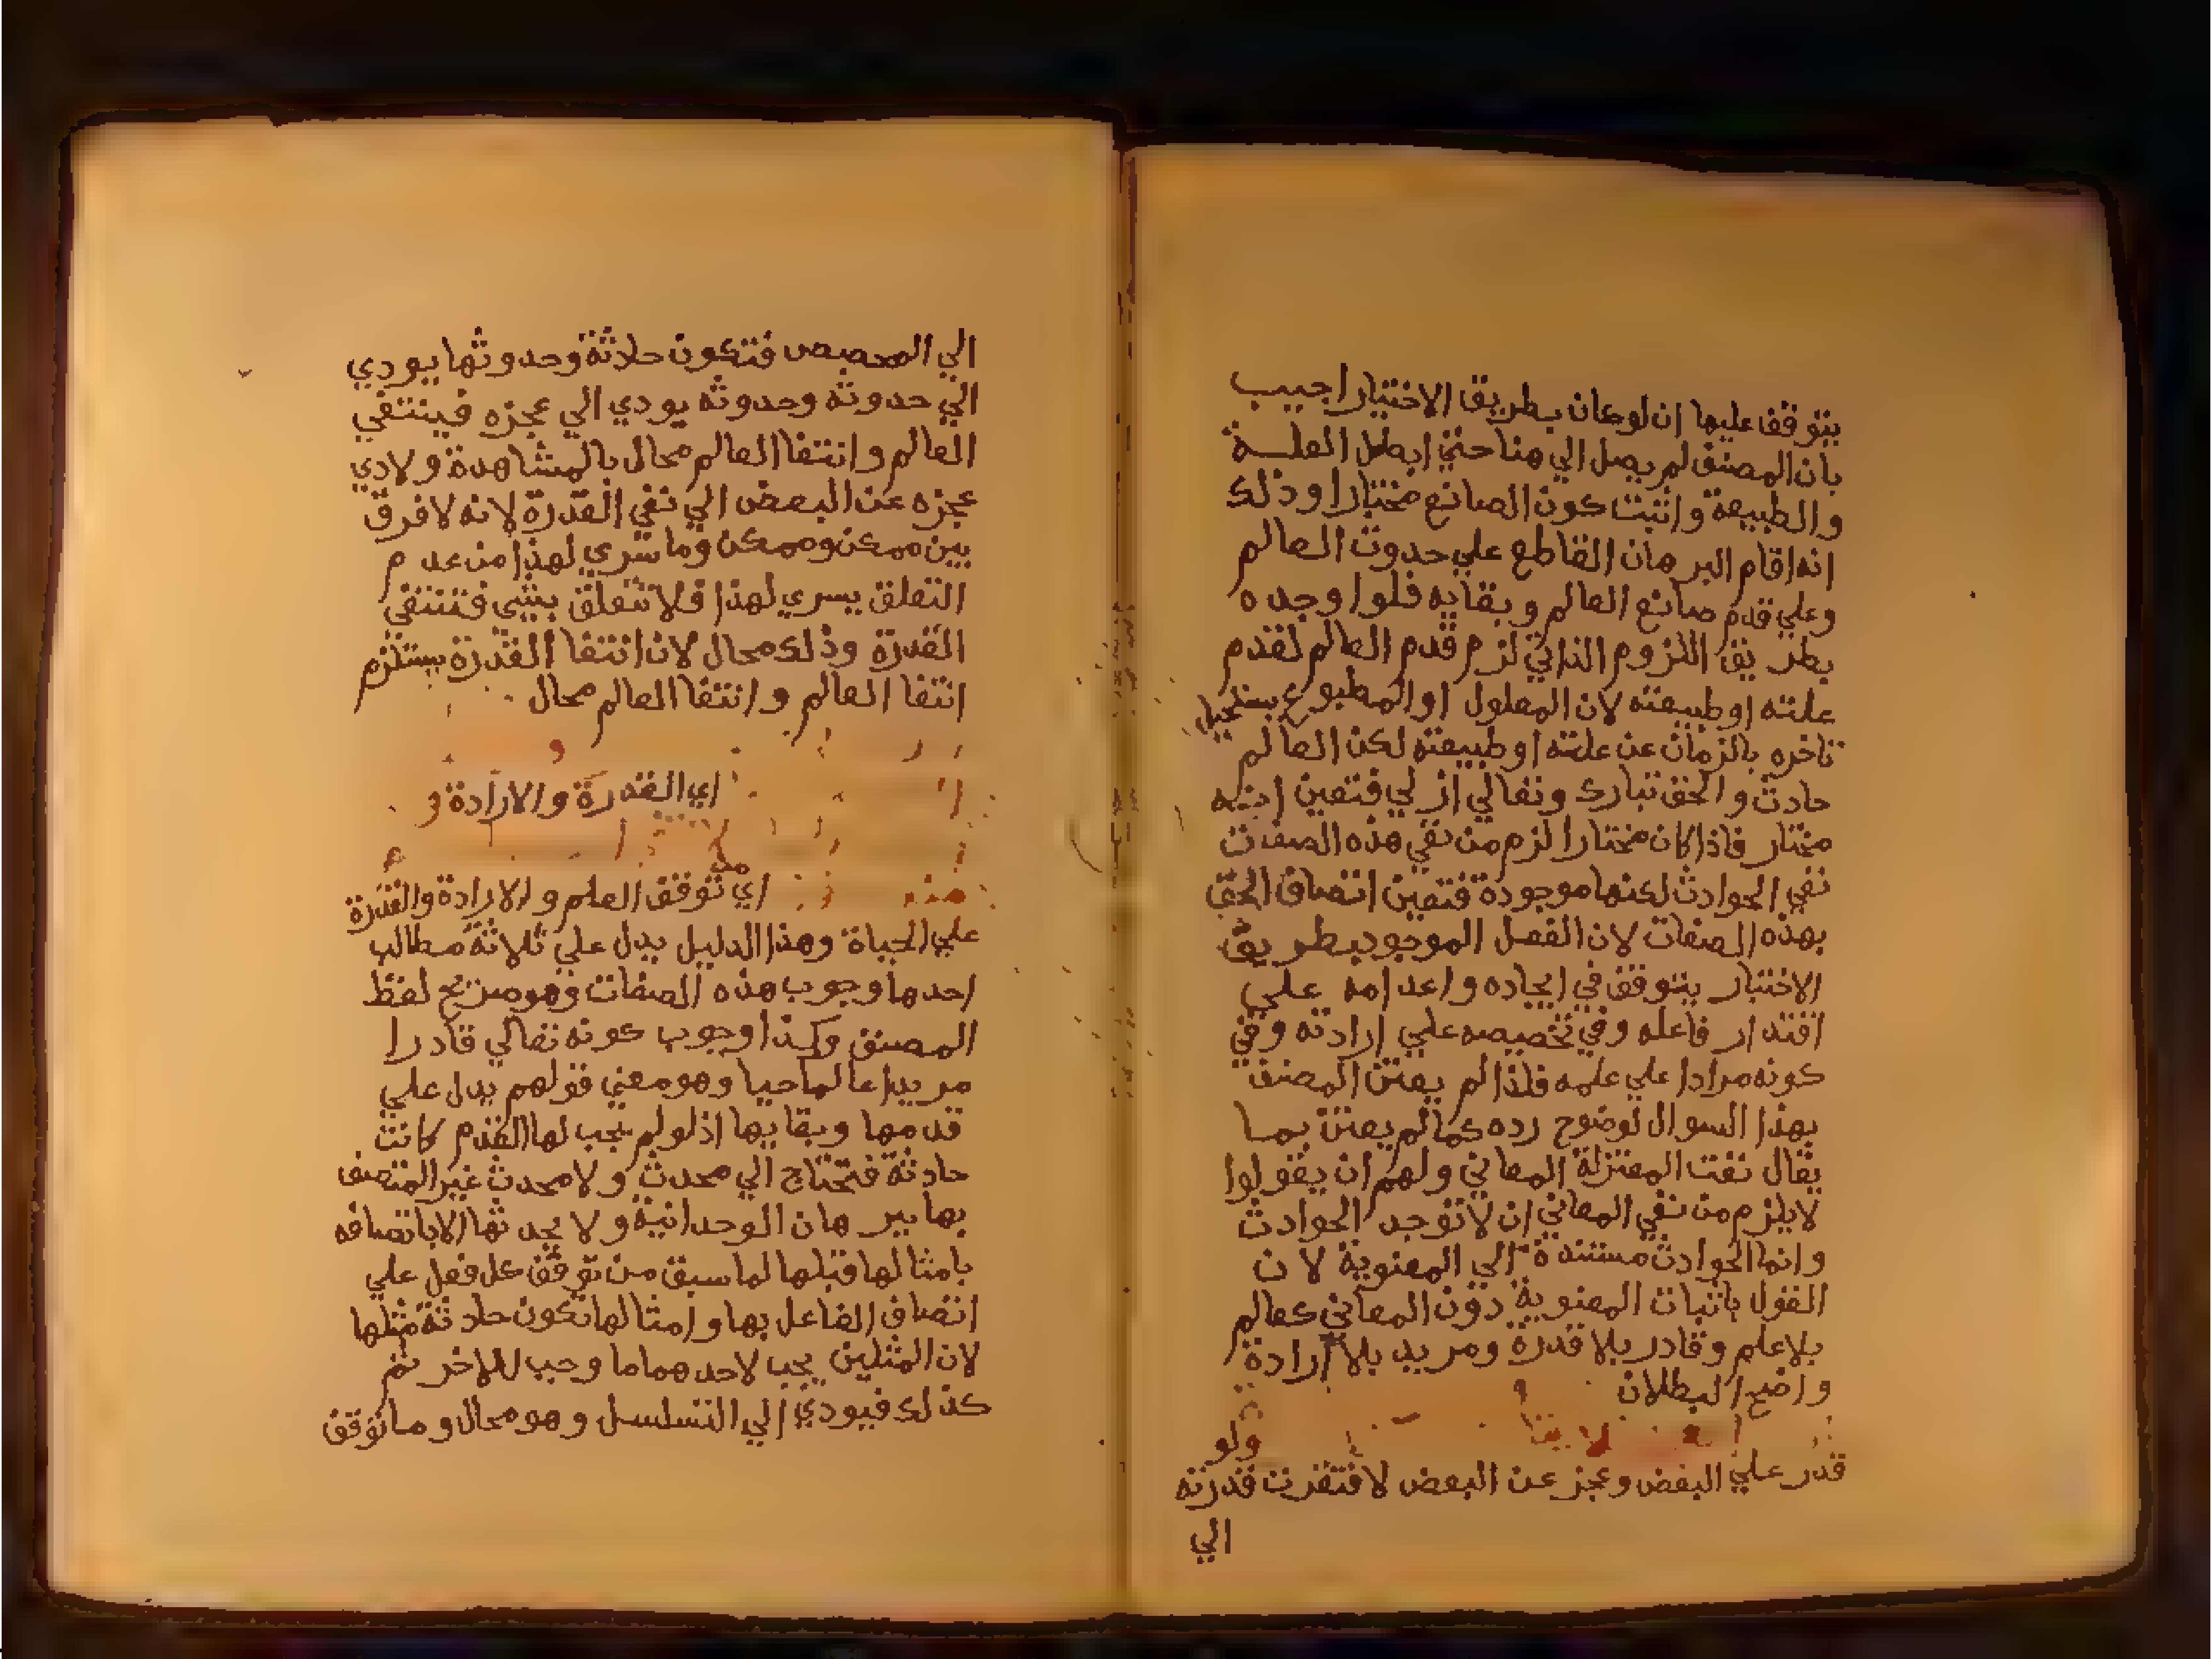 يتوقف عليها ان لو كان بطريق الاختيار اجيب
بان المصنف لم يصل الي هنا حتي ابطل العلة
والطبيعة واثبت كون الصانع مختارا وذلك
انه اقام البرهان القاطع علي حدوث العالم
وعلي قدم صانع العالم وبقايه فلو اوجده
بطريق اللزوم الذاتي لزم قدم العالم لقدم
علته او طبيعته لان المعلول او المطبوع يستحيل
تاخره بالزمان عن علته او طبيعته لكن العالم
حادث والحق تبارك وتعالي ازلي فتعين انه
مختار فاذا كان مختارا لزم من نفي هذه الصفات
نفي الحوادث لكنها موجودة فتعين اتصاف الحق
بهذه الصفات لان الفعل الموجود بطريق
الاختيار يتوقف في ايجاده واعدامه علي
اقتدار فاعله وفي تخصيصه علي ارادته وفي
كونه مرادا علي علمه فلذا لم يعتن المصنف
بهذا السوال لوضوح رده كما لم يعتن بما
يقال نفت المعتزلة المعاني ولهم ان يقولوا
لا يلزم من نفي المعاني ان لا توجد الحوادث
وانما الحوادث مستندة الي المعنوية لان
القول باثبات المعنوية دون المعاني كعالم
بلا علم وقادر بلا قدرة ومريد بلا ارادة
واضح البطلان
ولو
قدر علي البعض وعجز عن البعض لافتقرت قدرته
الي
الي المخصص فتكون حادثة وحدوثها يودي
الي حدوثه وحدوثه يودي الي عجزه فينتفي
العالم وانتفا العالم محال بالمشاهدة ولادي
عجزه عن البعض الي نفي القدرة لانه لا فرق
بين ممكن وممكن وما سري لهذا من عدم
التعلق يسري لهذا فلا تتعلق بشي فتنتفي
القدرة وذلك محال لان انتفا القدرة يستلزم
انتفا العالم وانتفا العالم محال
اي القدرة والارادة و
هذه اي توقف العلم والارادة والقدرة
علي الحياة وهذا الدليل يدل علي ثلاثة مطالب
احدها وجوب هذه الصفات وهو صريح لفظ
المصنف وكذا وجوب كونه تعالي قادرا
مريدا عالما حيا وهو معني قولهم يدل علي
قدمها وبقايها اذ لو لم يجب لها القدم كانت
حادثة فتحتاج الي محدث ولا محدث غير المتصف
بها ببرهان الوحدانية ولا يحدثها الا باتصافه
بامثالها قبلها لما سبق من توقف كل فعل علي
اتصاف الفاعل بها وامثالها تكون حادثة مثلها
لان المثلين يجب لاحدهما ما وجب للاخر ثم
كذلك فيودي الي التسلسل وهو محال وما توقف